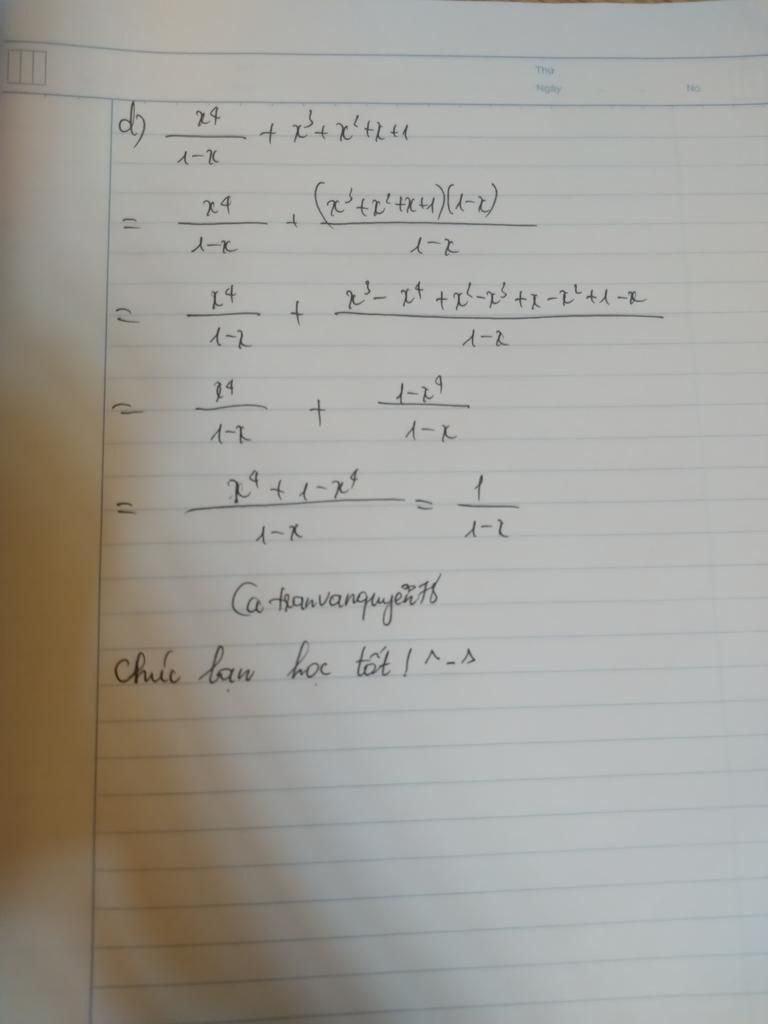 Thứ
Ngày No.
d) x⁴/(1-x) + x³ + x² + x + 1
= x⁴/(1-x) + (x³ + x² + x + 1)(1-x)/(1-x)
= x⁴/(1-x) + (x³ - x⁴ + x² - x³ + x - x² + 1 - x)/(1-x)
= x⁴/(1-x) + (1-x⁴)/(1-x)
= (x⁴ + 1 - x⁴)/(1-x) = 1/(1-x)
@tranvanquyền76
Chúc bạn học tốt! ^-^